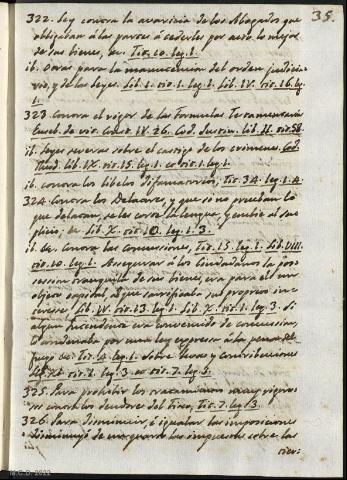 35.
322. Ley contra la avaricia de los Abogados que
obligaban á las partes á cederles por acto lo mejor
de sus bienes, &c. Tit. 10. leg. 1.
it. Otras para la manutencion del orden judicia-
rio, y de las leyes. Lib. 1. tit. 1. leg. 1. Lib. IV. tit. 16. leg.
1.
323. Contra el rigor de las Formulas Testamentarias
Euseb. de vit. Const. IV. 26. Cod. Justin. lib. II. tit. 58.
it. leyes severas sobre el castigo de los crimenes. Cod.
Theod. lib. IX. tit. 15. leg. 1. et tit. 1. leg. 1.
it. contra los libelos difamatorios; Tit. 34. leg. 1. 4.
324. Contra los Delatores, y que si no prueban lo
que delatan, se les corte la lengua, y embie al su-
plicio; &c. lib. X. tit. 10. leg. 1. 3.
it. &c. Contra las concusiones, Tit. 15. leg. 1. Lib. VIII.
tit. 10. leg. 1. Assegurar á los Ciudadanos la pos-
session tranquila de sus bienes, era para el un
objeto capital, al que sacrificaba sus proprios in-
tereses, lib. IV. tit. 13. leg. 1. lib. X. tit. 1. leg. 3. Si
algun Intendente era convencido de concussion,
le condenaba por una ley expressa á la pena del
fuego &c. Tit. 4. leg. 1. Sobre levas y contribuciones
lib. XI. tit. 1. leg. 3. et tit. 7. leg. 5.
325. Para prohibir los tratamientos muy riguro-
sos contra los deudores del Fisco, Tit. 7. leg. 3.
326. Para disminuir, ó igualar las imposiciones
disminuyó de un quarto los impuestos sobre las
tier-